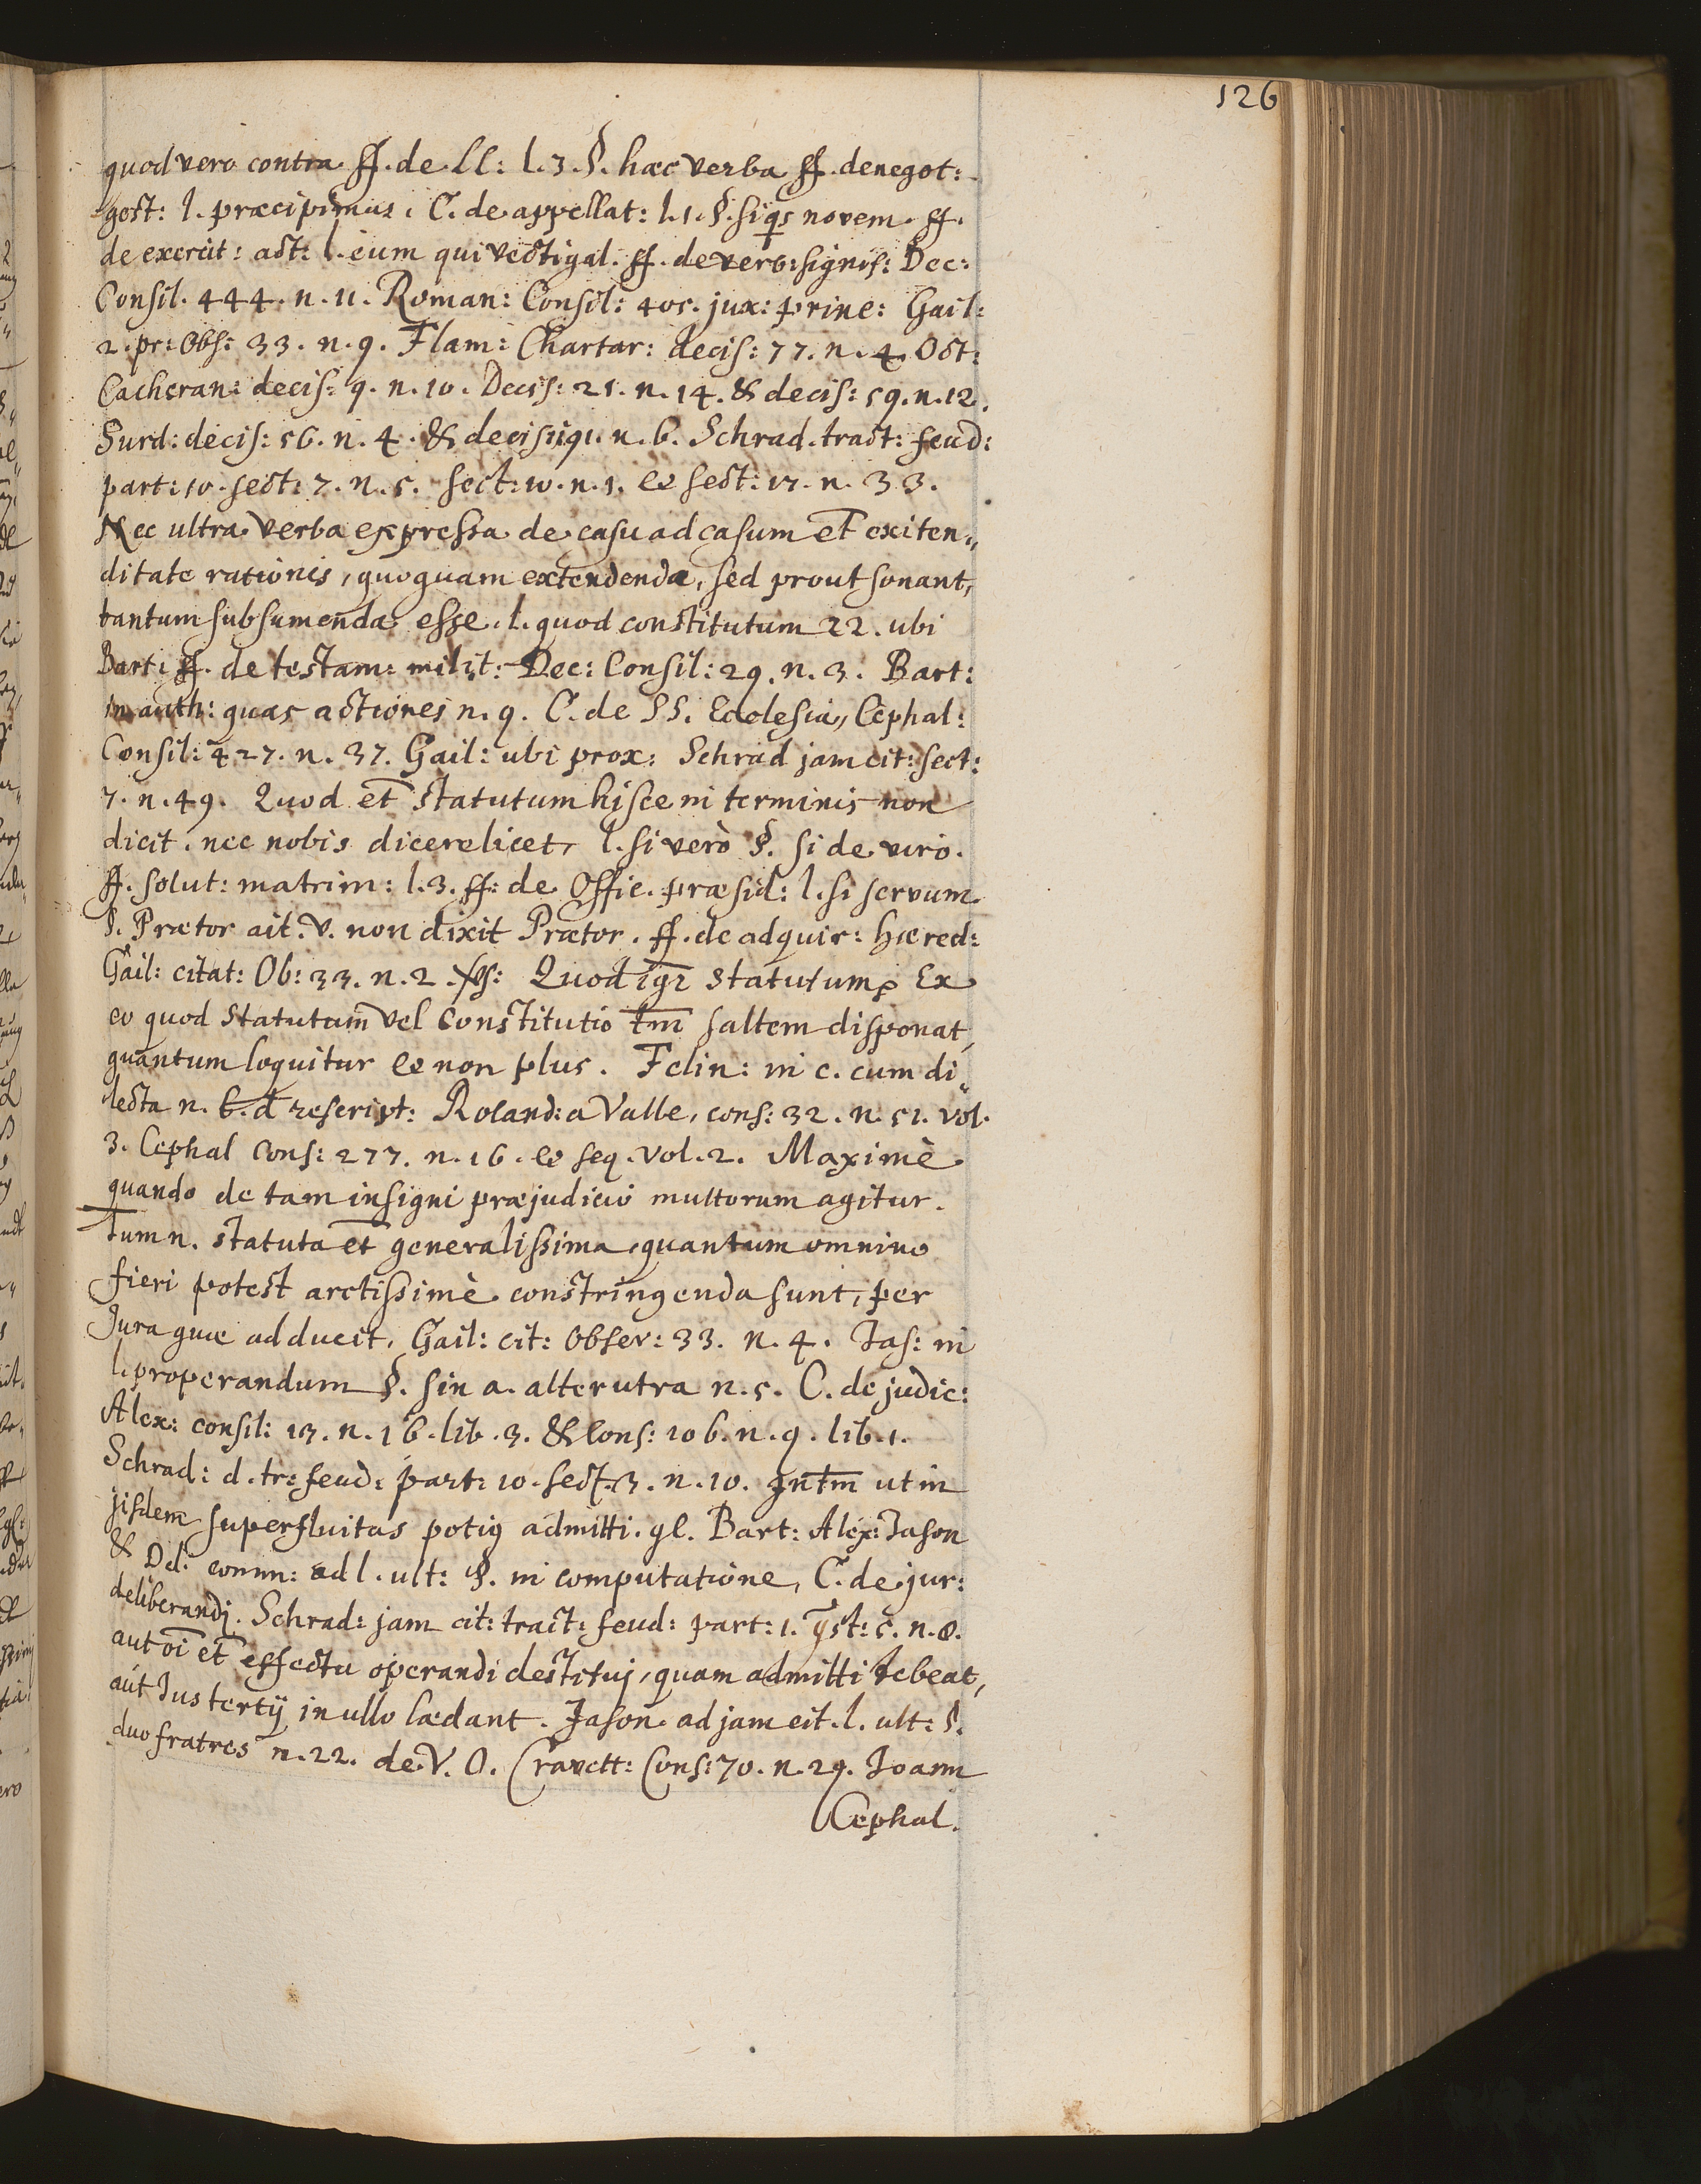 126
quod vero contra ff. de Ll: l. 3. §. hæc verba ff. de negot:
gest: l. præcipimus. C. de appellat: l. 1. §. siqs novem. ff.
de exercit: act: l. eum qui vectigal. ff. de verb: signif: Dec:
Consil. 444. n. 11. Roman: Consil: 405. jux: prine: Gail:
2. pr: Obs: 33. n. 9. Flam: Chartar: decis: 77. n. 4. Oct:
Cacheran: decis: 9. n. 10. Decis: 21. n. 14. & decis: 59. n. 12.
Surd: decis: 56. n. 4. & decis: 191. n. 6. Schrad. tract: feud:
part: 10. sect: 7. n. 5. sect: 10. n. 1. et sect: 17. n. 33.
Nec ultra verba expressa de casu ad casum et exiten„
ditate rationis, quoquam extendenda, sed prout sonant,
tantum subsumenda esse. l. quod constitutum 22. ubi
Bart: ff. de testam: milit: Dec: Consil: 29. n. 3. Bart:
in auth: quas actiones n. 9. C. de SS. Ecclesia„ Cephal:
Consil: 427. n. 37. Gail: ubi prox: Schrad jam cit: sect:
7. n. 49. Quod et statutum hisce in terminis non
dicit. nec nobis dicere licet, l. si verò §. si de viro.
ff. solut: matrim: l. 3. ff: de Offic. præsid: l. si servum
§. Prætor ait. v. non dixit Prætor. ff. de adquir: hæred:
Gail: citat: Ob: 33. n. 2. Quod igr statutum Ex
eo quod Statutum vel Constitutio tm saltem disponat,
quantum loquitur et non plus. Felin: in c. cum di„
lecta n. 6. d rescript: Roland: a Valle, cons: 32. n. 51. vol.
3. Cephal Cons: 277. n. 16. et seq. vol. 2. Maximè
quando de tam insigni præjudicio multorum agitur.
Tum n. statuta et generalissima, quantum omnino
fieri potest arctissimè constringenda sunt, per
Jura quæ adducit, Gail: cit: Obser: 33. n. 4. Jas: in
l. properandum §. sin a. alterutra n. 5. C. de judic:
Alex: consil: 13. n. 16. lib. 3. & Cons: 106. n. 9. lib. 1.
Schrad: d. tr: feud: part: 10. sect. 3. n. 10. ut in
jisdem superfluitas potig admitti. gl. Bart: Alex: Jason
& Dd: comm: ad l. ult: §. in computatione, C. de jur:
deliberandj. Schrad: jam cit: tract: feud: part: 1. n. 8.
aut oi et effectu operandi destituj, quam admitti debeat,
aut Jus tertij in ullo lædant. Jason ad jam cit. l. ult: §.
duo fratres n. 22. de V. O. Cravett: Cons: 70. n. 29. Joann
Cephal.